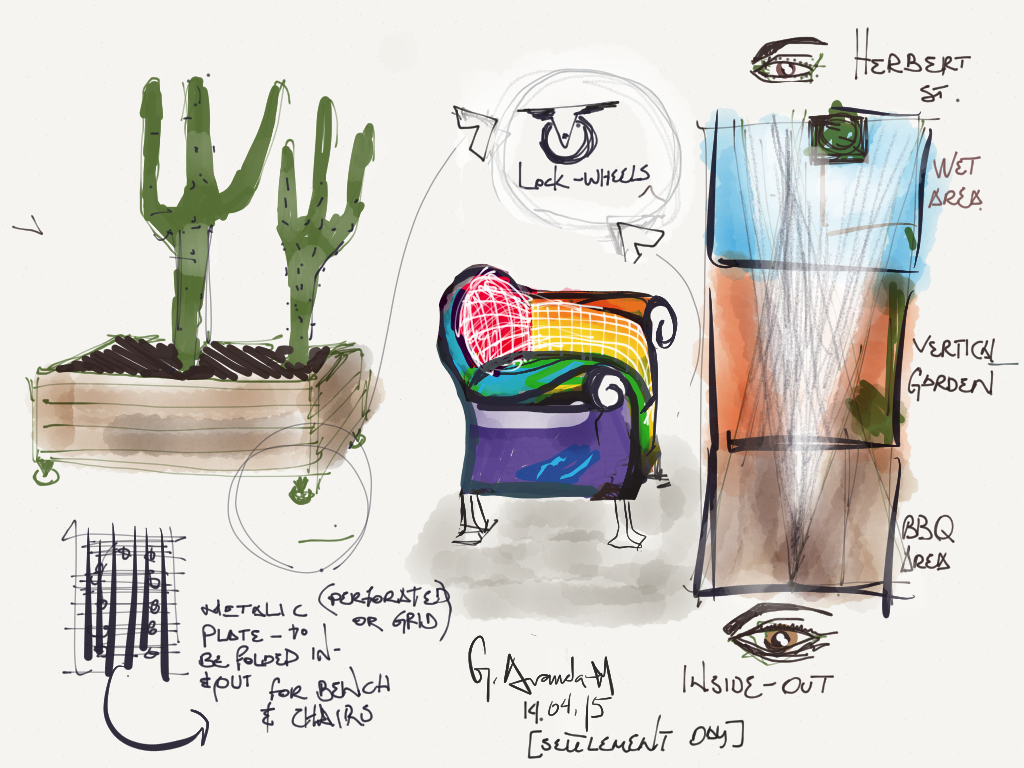 HERBERT
ST.
LOCK-WHEELS
WET
AREA
VERTICAL
GARDEN
BBQ
AREA
METALIC (PERFORATED
OR GRID)
PLATE - to
BE FOLDED IN-
&OUT FOR BENCH
& CHAIRS
G. Aranda-M
14.04.15
[SETTLEMENT DAY]
INSIDE-OUT